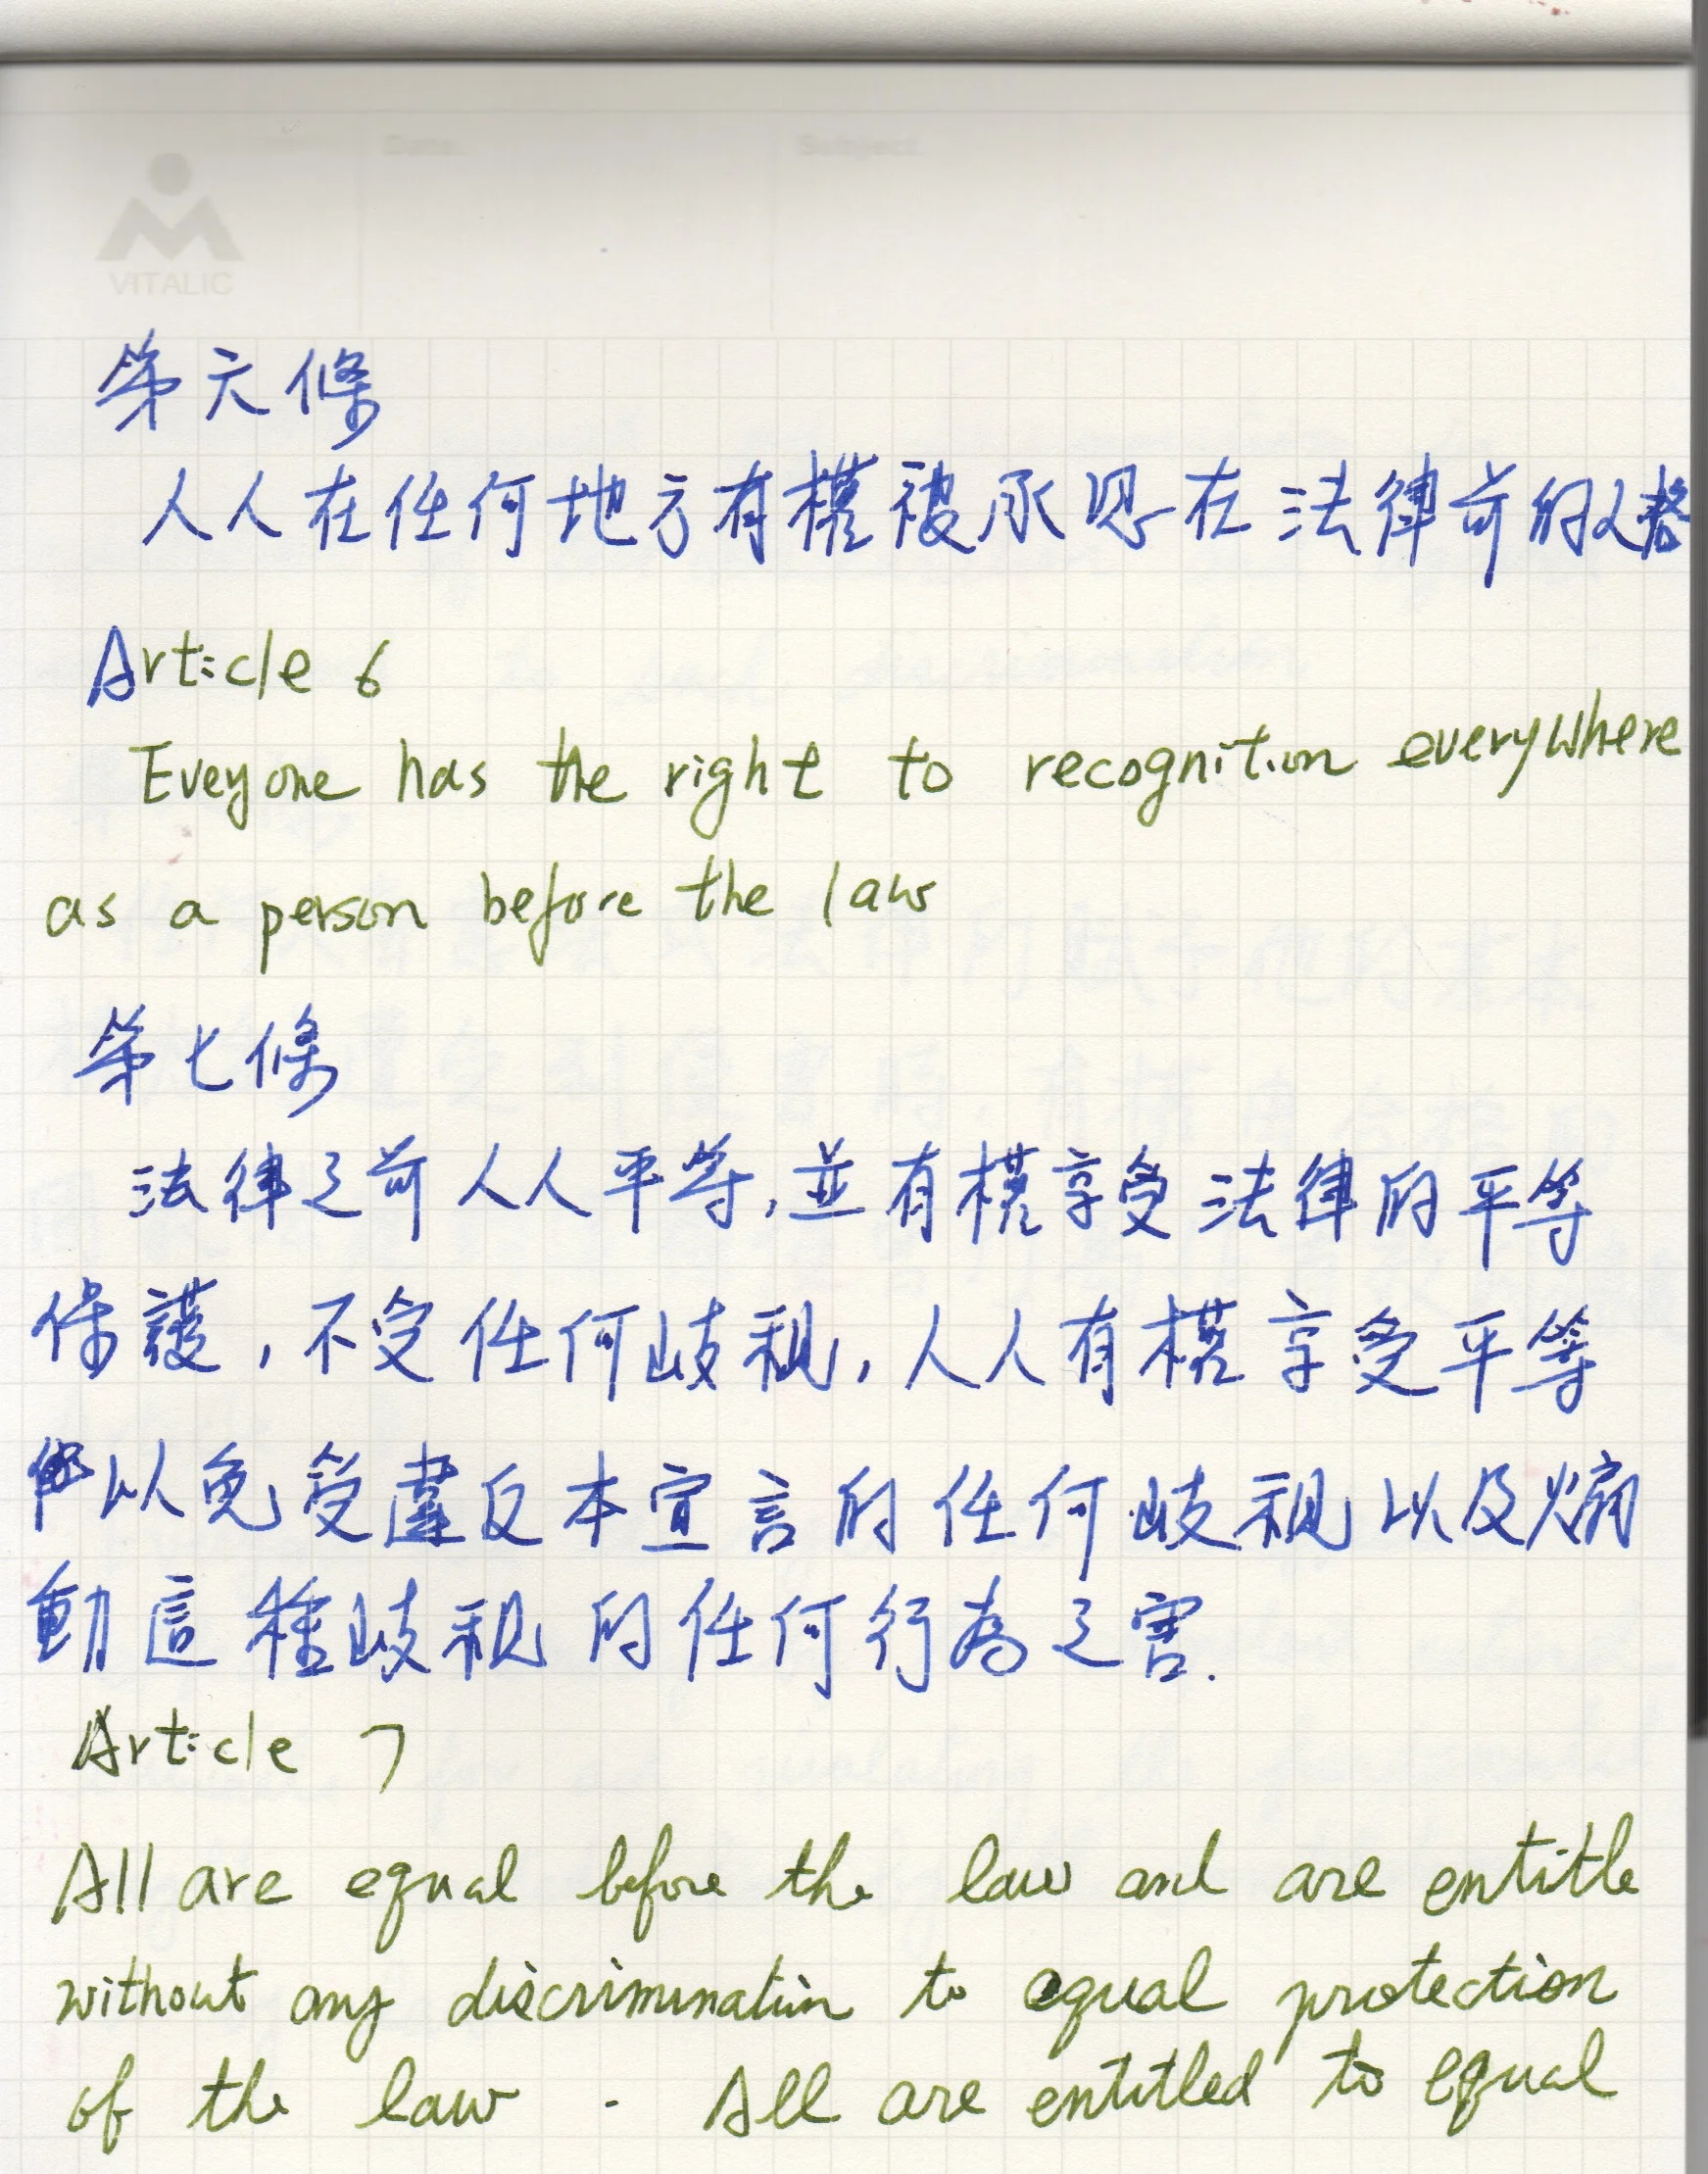 Date. Subject.
VITALIC
第六條
人人在任何地方有權被承認在法律前的人格
Article 6
Eveyone has the right to recognition everywhere
as a person before the law
第七條
法律之前人人平等,並有權享受法律的平等
保護,不受任何歧視,人人有權享受平等
保以免受違反本宣言的任何歧視以及煽
動這種歧視的任何行為之害.
Article 7
All are equal before the law and are entitle
without any discrimination to equal protection
of the law. All are entitled to equal